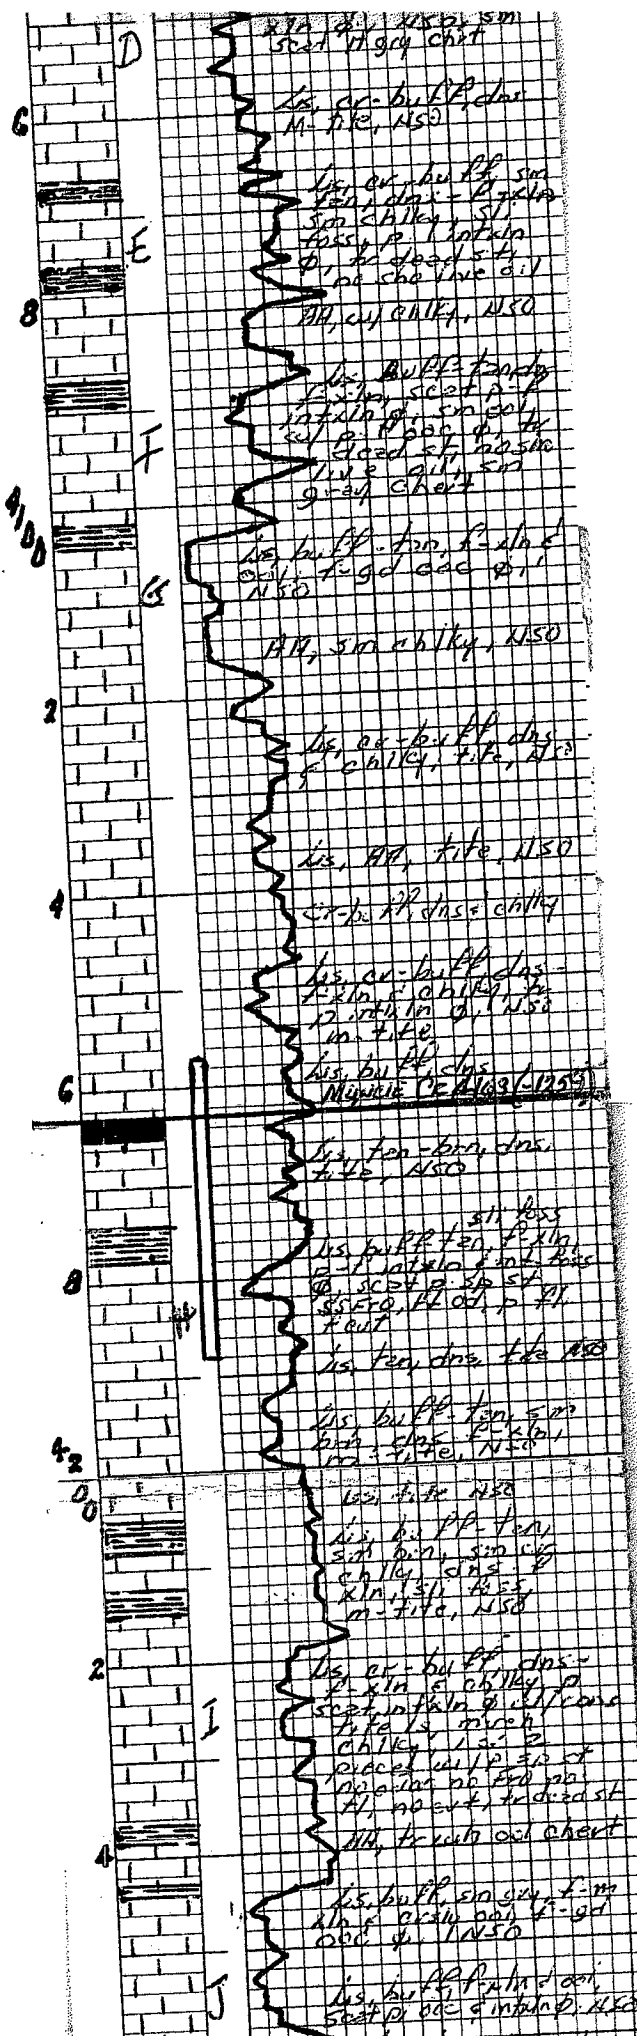 D
xln φ, NSO, sm
scat lt gry chrt
Ls, cr-buff, dns
M-tite, NSO
6
Ls, cr-buff, sm
tan, dns-f-xln
sm chlky, sli
foss, p intxln
φ, no dead st,
no sho live oil
E
8
AA, w/ chlky, NSO
Ls, buff-tan,
f-xln, scat p-f
intxln φ, sm ool
w/ p-f ooc φ, tr
dead st, no sho
live oil, sm
gray chert
F
4100
Ls, buff-tan, f-xln &
ool, f-gd ooc φ,
NSO
G
AA, sm chlky, NSO
2
Ls, cr-buff, dns
chlky, tite, NSO
Ls, AA, tite, NSO
4
Cr-buff, dns & chlky
Ls, cr-buff, dns-
f-xln & chlky, tr
p intxln φ, NSO
m-tite
Ls, buff, dns
6
Muncie Cr 4163 (-1259)
Ls, tan-brn, dns,
tite, NSO
sli foss
Ls, buff-tan, f-xln,
p-f intxln & int foss
φ, scat p sp st
SSFO, ft od, p fl,
cut
8
H
Ls, tan, dns, tite NSO
Ls, buff-tan, sm
brn, dns-f-xln,
m-tite, NSO
4200
Ls, tite NSO
Ls, buff-tan,
sm brn, sm
chlky, dns-f
xln, sli foss,
m-tite, NSO
2
Ls, cr-buff, dns-
f-xln & chlky, p
scat intxln φ w/ cons
tite ls, much
chlky, 1 or 2
pieces w/ p sp st
no odor no FO no
fl, no cut, tr dead st
I
AA, tr wh ool chert
4
Ls, buff, sm gry, f-m
xln & crsly ool, f-gd
ooc φ, NSO
Ls, buff, f-xln & ool,
scat p ooc & intxln φ, NSO
J